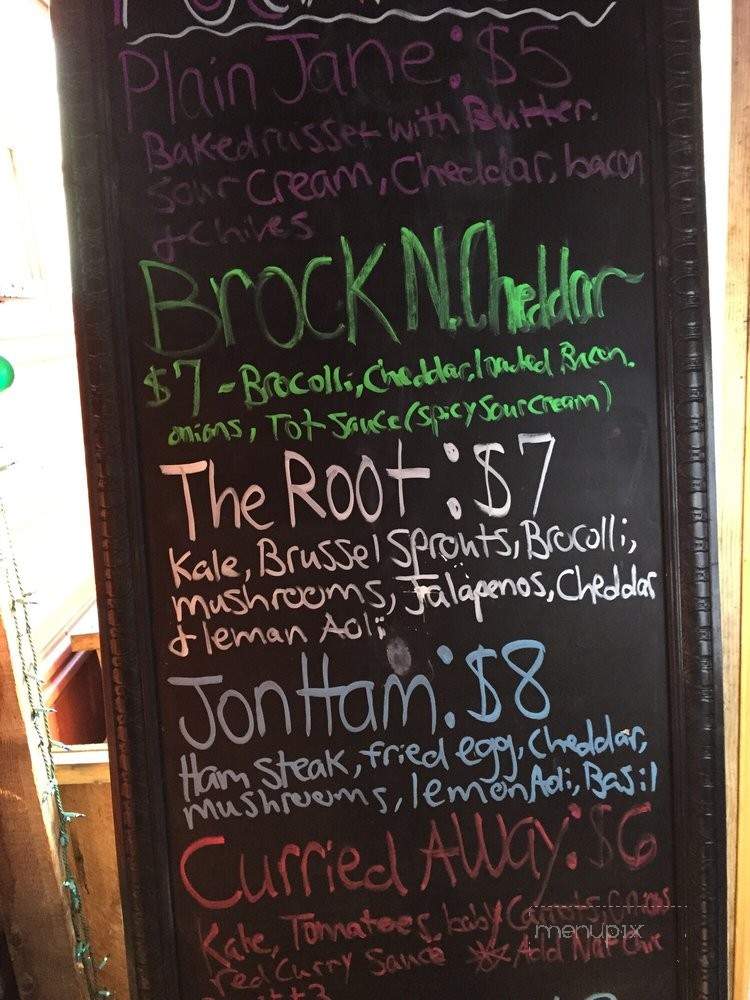 Plain Jane: $5
Baked russet with Butter.
Sour Cream, Cheddar, bacon
& Chives
Brock N. Cheddar
$7 - Brocolli, Cheddar, loaded Bacon.
onions, Tot Sauce (spicy sour cream)
The Root: $7
Kale, Brussel sprouts, Brocolli,
mushrooms, Jalapenos, Cheddar
& leman Aoli
Jon Ham: $8
Ham steak, fried egg, cheddar,
mushrooms, lemon Aoli, Basil
Curried AWay: $6
Kale, Tomatoes, baby Carrots, Onions
red Curry Sauce * Add Naf Chic
menupix